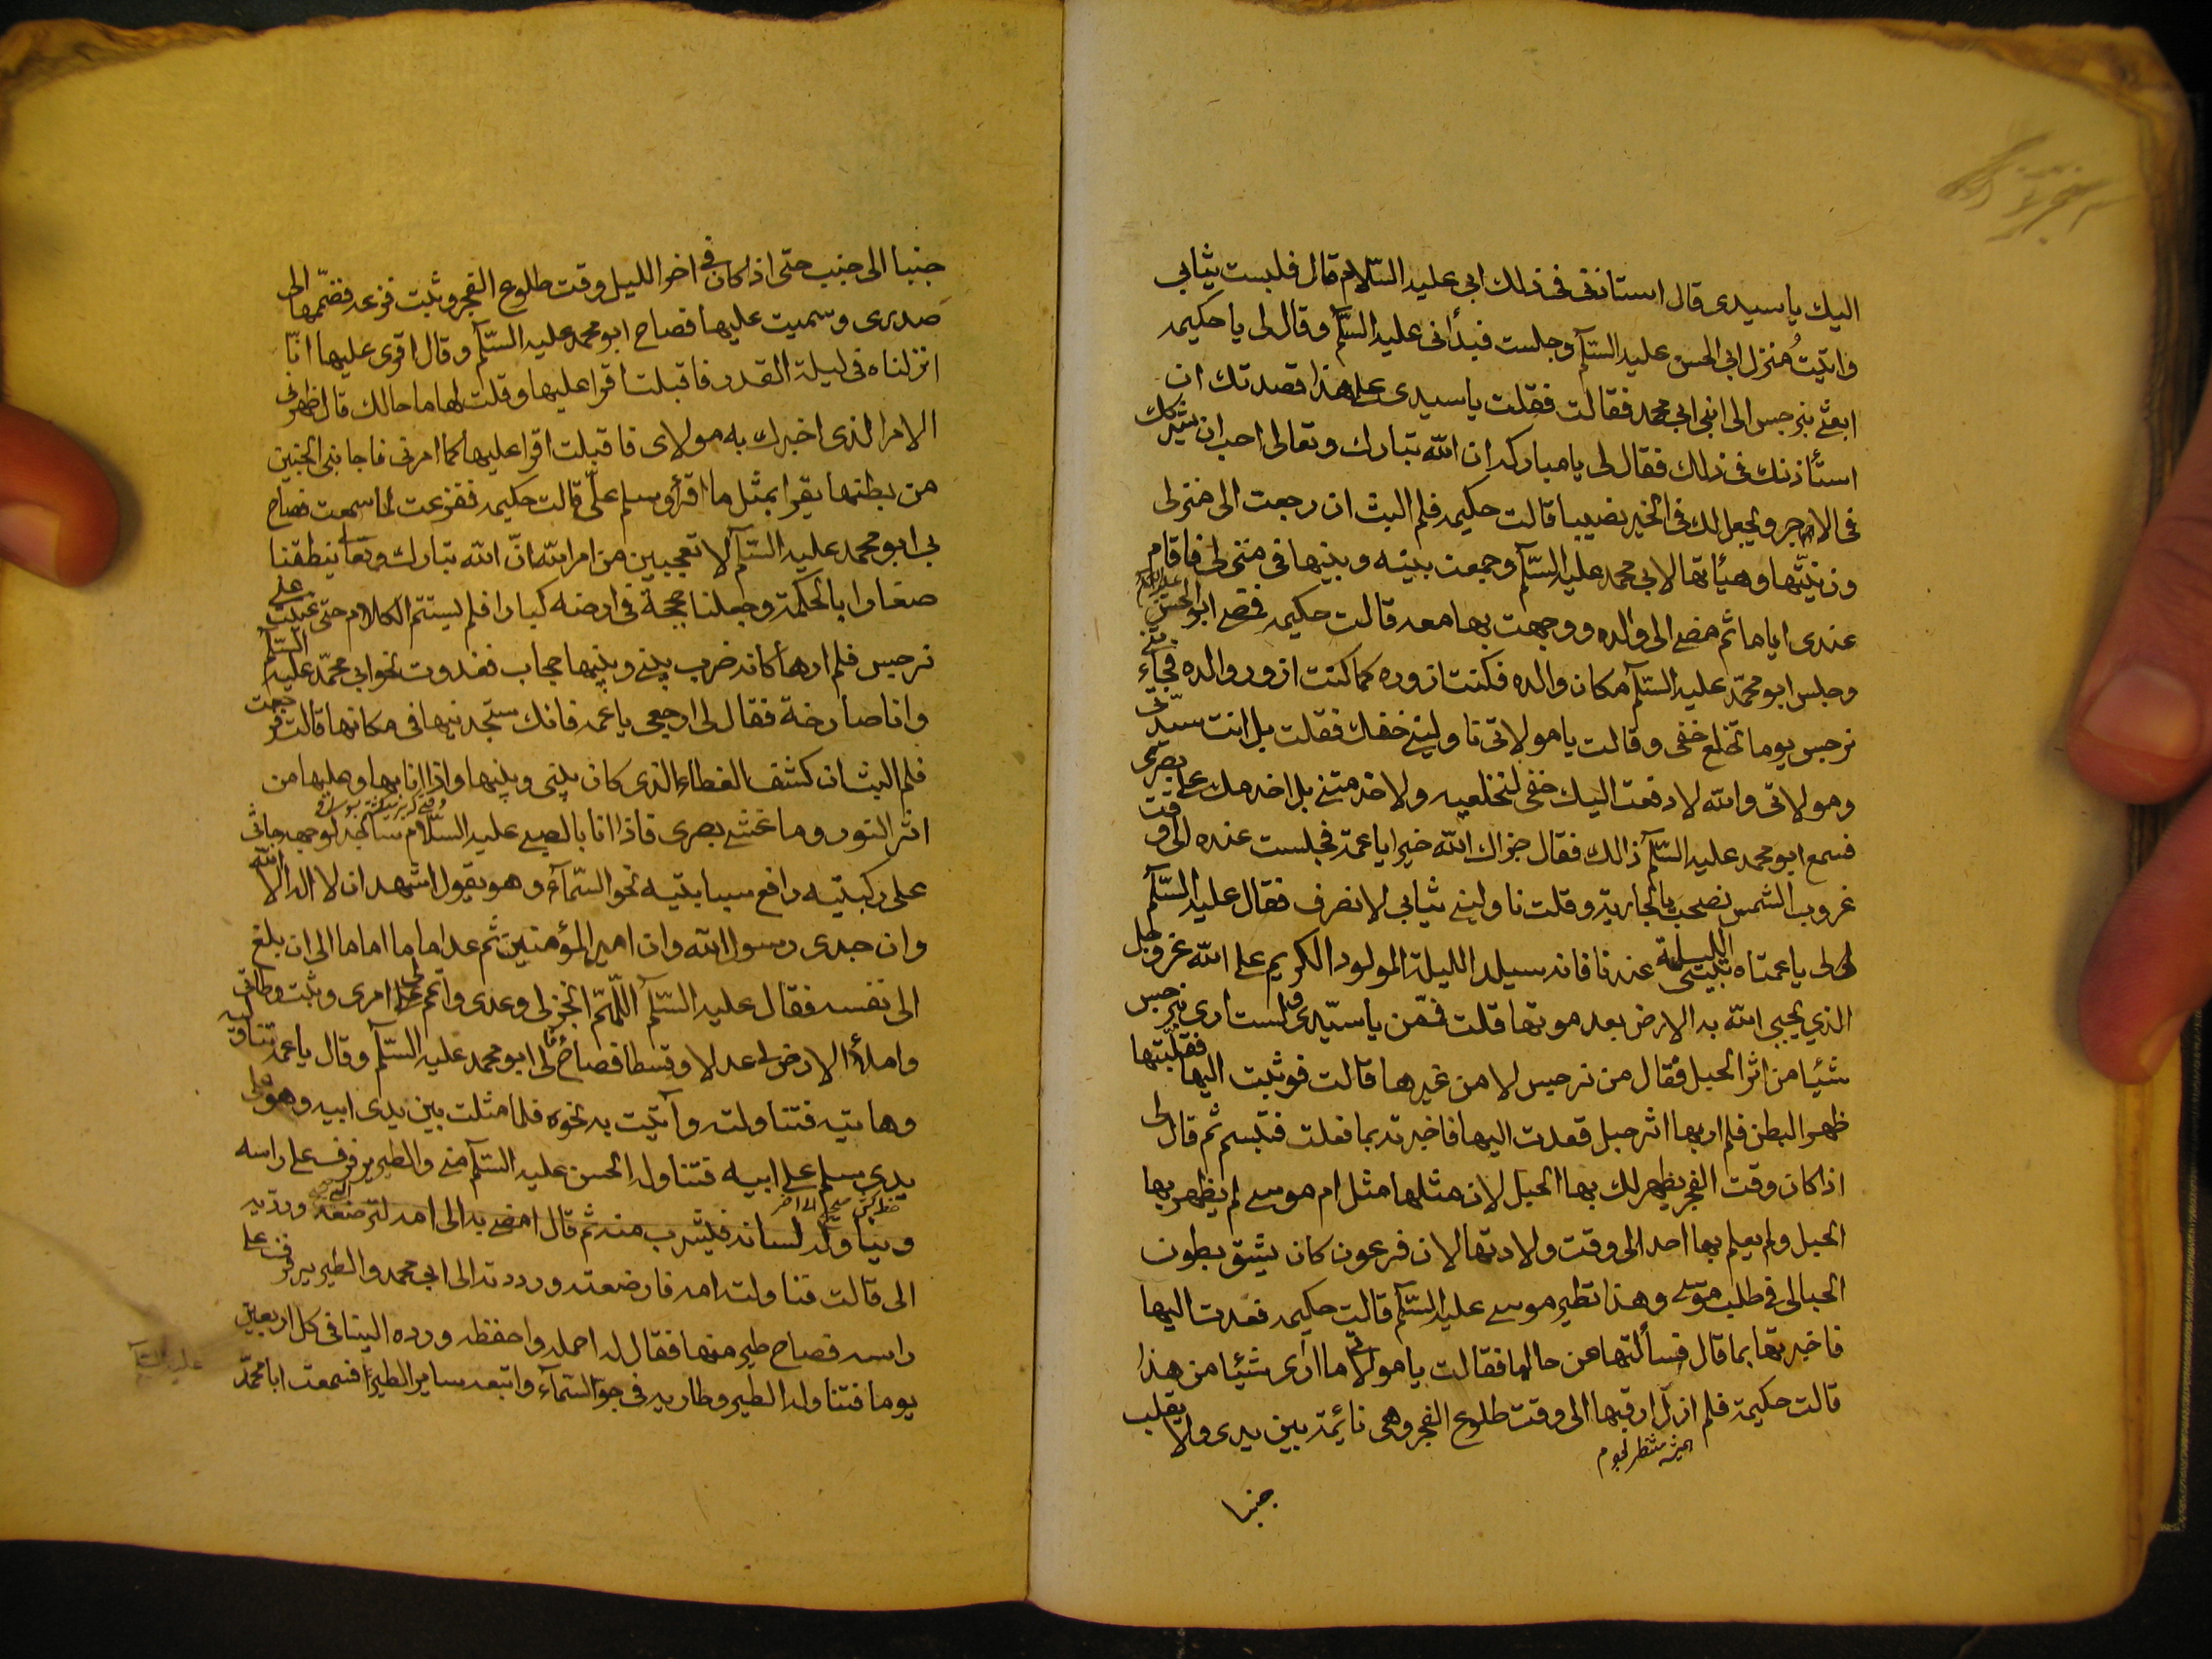 اليك يا سيدى قال استاذنى فى ذلك ابى عليه السّلام قال فلبست ثيابى
واتيتُ منزل ابى الحسن عليه السّلم وجلست فبدأنى عليه السّلم وقال لى يا حكيمه
ابعثى بنرجس الى ابنى ابى محمد فقالت فقلت يا سيدى على هذا قصدتك ان
استأذنك فى ذلك فقال لى يا مباركه ان الله تبارك وتعالى احب ان يشركك
فى الاجر ويجعل لك فى الخير نصيبا قالت حكيمه فلم البث ان رجعت الى منزلى
وزينتها وهيأتها لابى محمد عليه السّلم وجمعت بينه وبينها فى منزلى فاقام
عندى اياما ثم مضى الى والده ووجهت بها معه قالت حكيمه فمضى ابو الحسن عليه السلم
وجلس ابو محمّد عليه السّلم مكان والده فكنت ازوره كما كنت ازور والده فجاءتنى
نرجس يوما تخلع خفى وقالت يا مولاتى ناولينى خفك فقلت بل انت سيدتى
ومولاتى والله لا دفعت اليك خفى لتخلعيه ولا خدمتنى بل اخدمك على بصرى
فسمع ابو محمد عليه السّلم ذالك فقال جزاك الله خيرا يا عمه فجلست عنده الى وقت
غروب الشمس فصحت بالجارية وقلت ناولينى ثيابى لانصرف فقال عليه السّلم
لى يا عمتاه بيتى الليلة عندنا فانه سيلد الليلة المولود الكريم على الله عز وجل
الذي يحيى الله به الارض بعد موتها قلت فممّن يا سيّدى ولست ارى بنرجس
شيئا من اثر الحبل فقال من نرجس لا من غيرها قالت فوثبت اليها فقلبتها
ظهر البطن فلم ار بها اثر حبل فعدت اليها فاخبرته بما فعلت فتبسم ثم قال لى
اذا كان وقت الفجر يظهر لك بها الحبل لان مثلها مثل ام موسى لم يظهر بها
الحبل ولم يعلم بها احد الى وقت ولادتها لان فرعون كان يشق بطون
الحبالى فى طلب موسى وهذا نظير موسى عليه السّلم قالت حكيمه فعدت اليها
فاخبرتها بما قال فسألتها عن حالها فقالت يا مولاتى ما ارى شيئا من هذا
قالت حكيمة فلم ازل ارقبها الى وقت طلوع الفجر وهى نائمة بين يدى ولا تقلب
جنبا
جنبا الى جنب حتى اذا كان فى اخر الليل وقت طلوع الفجر وثبت فزعه فضمّمتها الى
صدرى وسميت عليها فصاح ابو محمد عليه السّلم وقال اقرئ عليها انّا
انزلناه فى ليلة القدر فاقبلت اقرا عليها وقلت لها ما حالك قال ظهر بى
الامر الذى اخبرك به مولاى فاقبلت اقرا عليها كما امرنى فاجابنى الجنين
من بطنها يقرا بمثل ما اقرأ وسلم علىّ قالت حكيمه ففزعت لما سمعت فصاح
بى ابو محمد عليه السّلم لا تعجبين من امر الله انّ الله تبارك وتعالى ينطقنا
صغارا بالحكمة وجعلنا حجة فى ارضه كبارا فلم يستتم الكلام حتى غيبت عنى
نرجس فلم ارها كانه ضرب بينى وبينها حجاب فغدوت نحو ابى محمّد عليه السّلم
وانا صارخة فقال لى ارجعى يا عمه فانك ستجدينها فى مكانها قالت فرجعت
فلم البث ان كشف الغطاء الذى كان بينى وبينها واذا انا بها وعليها من
اثر النور وما غشى بصرى فاذا انا بالصبى عليه السّلام ساجد لوجهه جاثى
على ركبتيه رافع سبابتيه نحو السّمآء وهو يقول اشهد ان لا اله الا الله
وان جدى رسول الله وان امير المؤمنين ثم عد اماما اماما الى ان بلغ
الى نفسه فقال عليه السّلم اللّهمّ انجز لى وعدى واتمم لى امرى وثبت وطأتى
واملأ الارض بى عدلا وقسطا فصاح لى ابو محمد عليه السّلم وقال يا عمه تناوليه
وهاتيه فتناولته وآتيت به نحوه فلما مثلت بين يدى ابيه وهو على
يدى سلم على ابيه فتناوله الحسن عليه السّلم منى والطير يرفرف على راسه
ويناوله لسانه فيشرب منه ثم قال امضى به الى امه لترضعه وردّيه
الى قالت فناولته امه فارضعته ورددته الى ابى محمد والطير يرفرف على
راسه فصاح طير منها فقال له احمله واحفظه ورده الينا فى كل اربعين
يوما فتناوله الطير وطار به فى جو السّمآء واتبعه ساير الطير فسمعت ابا محمّد
عليه السلم